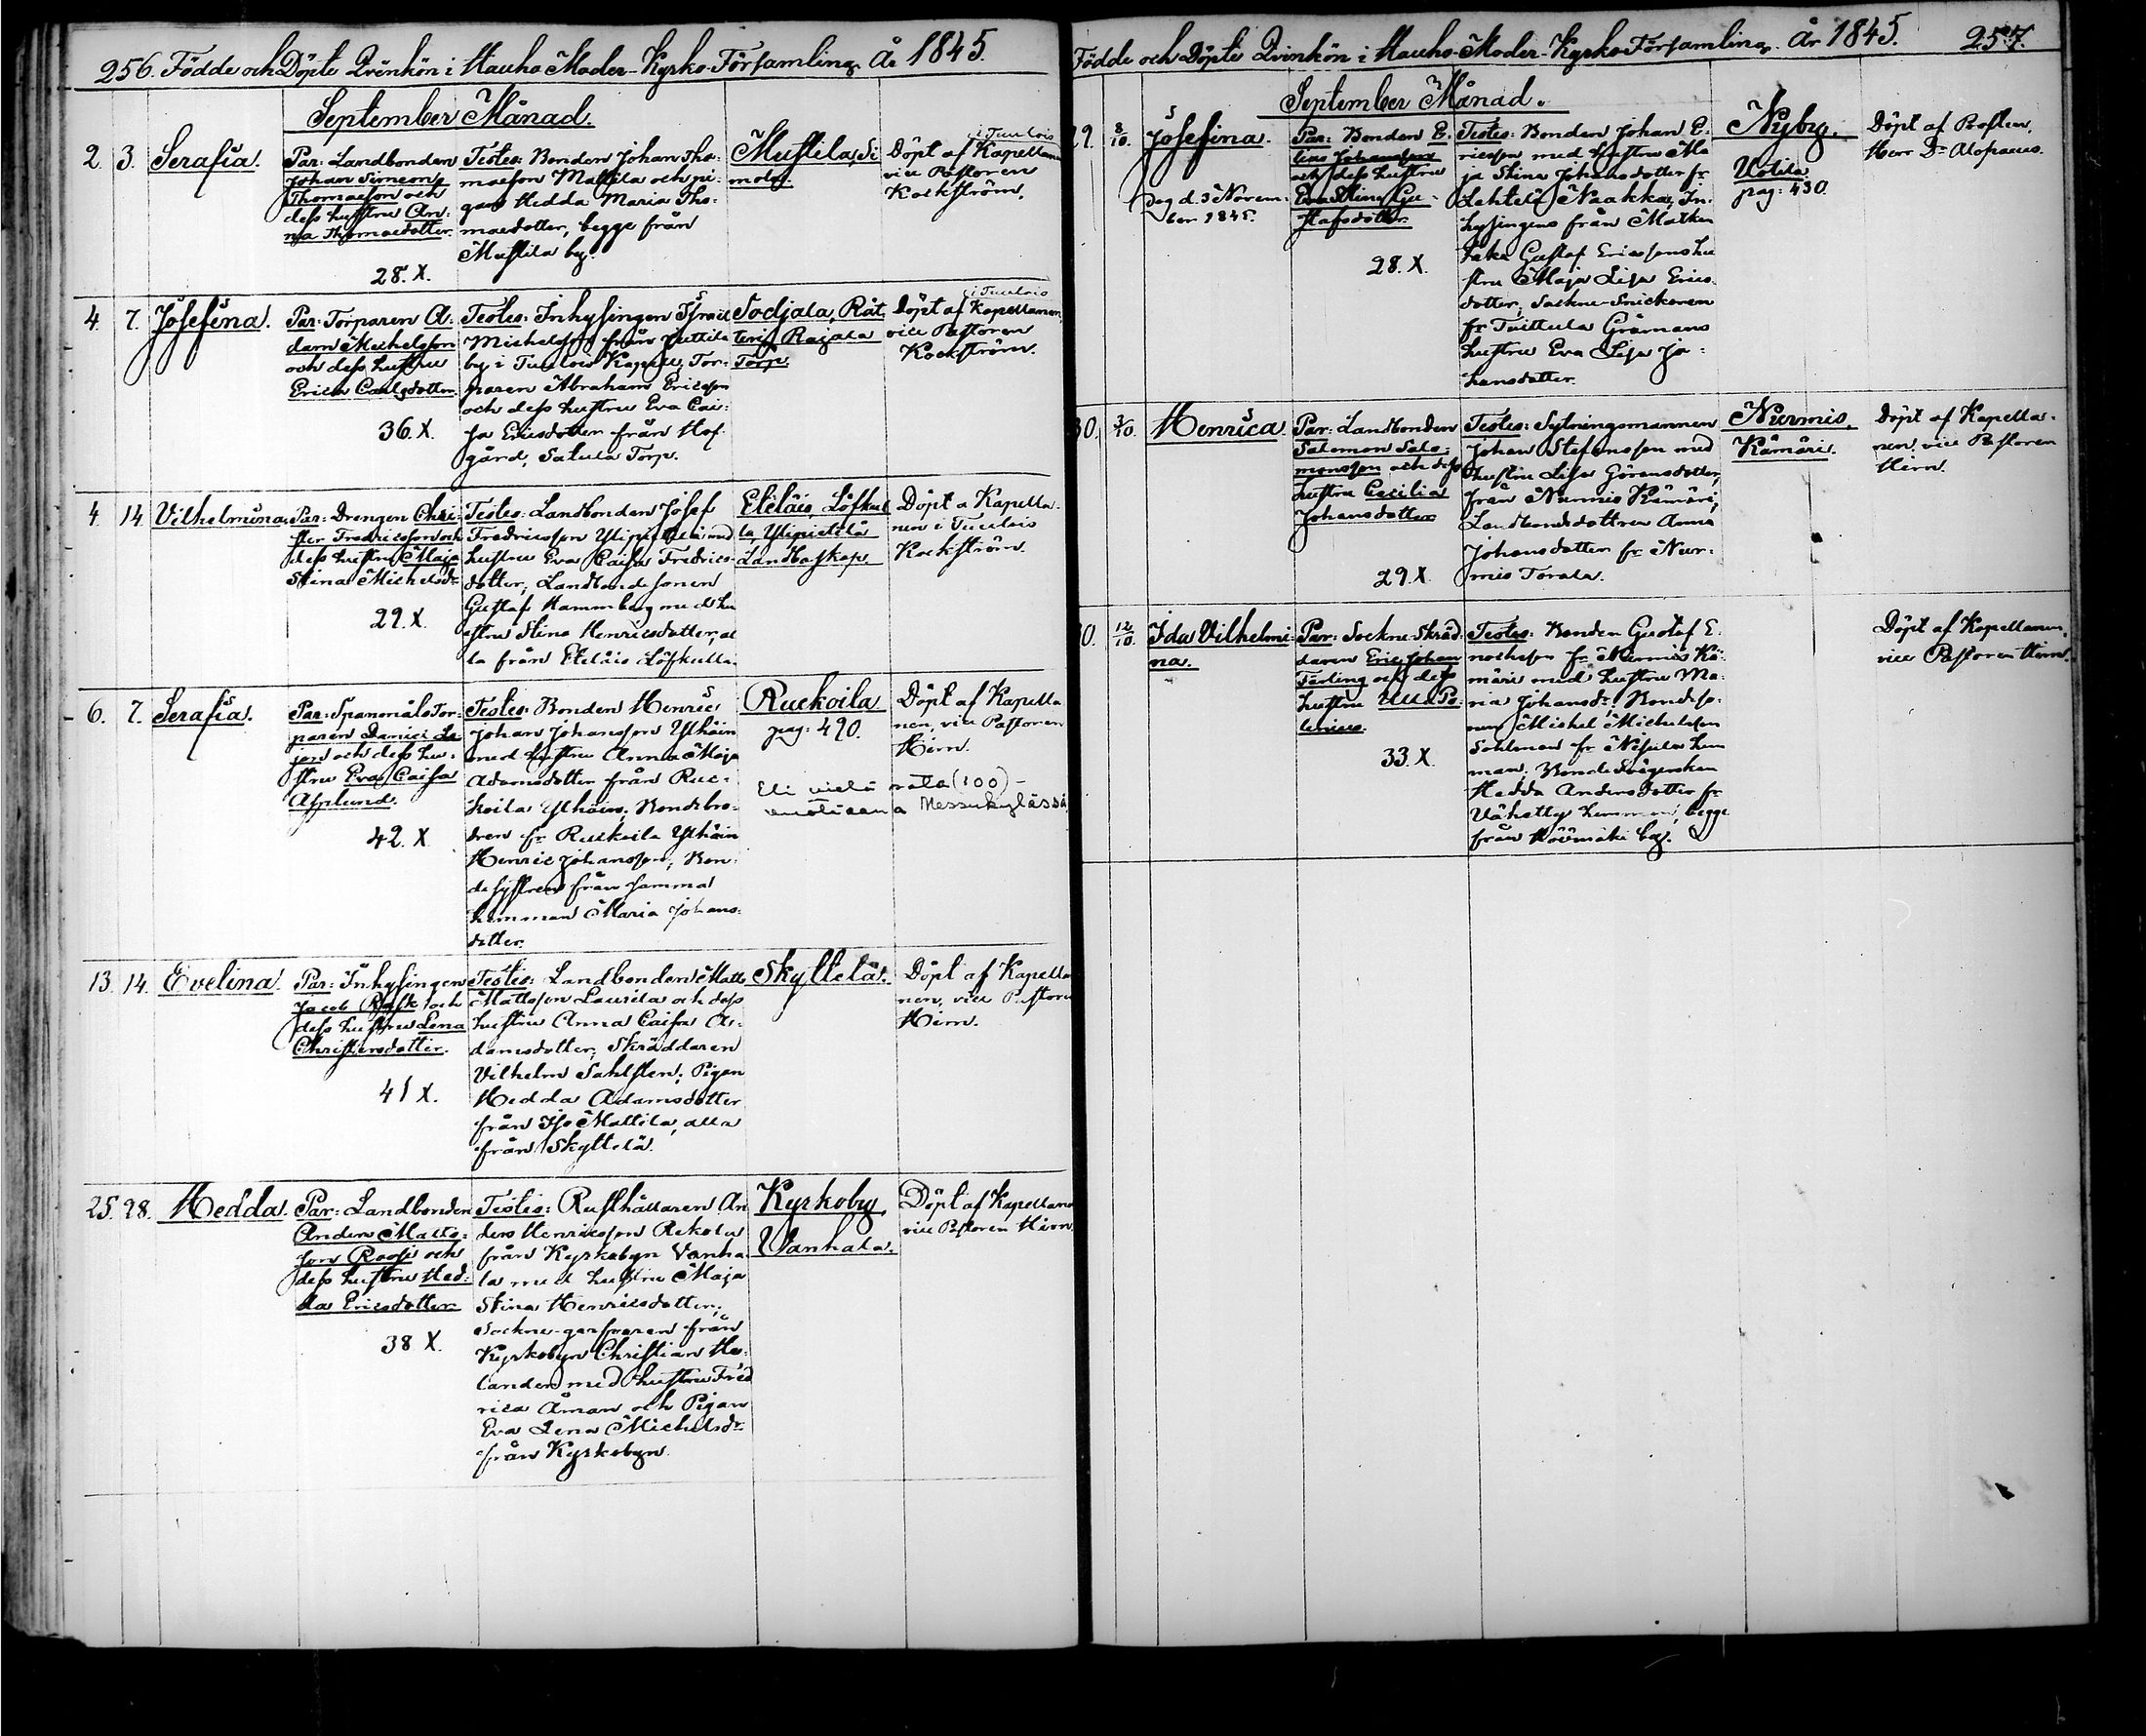 256. Födde och Döpte Qvinkön i Hauho Moder-Kyrko-Församling År 1845.
September Månad.
2. 3. Serafia.
Par: Landbonden
Johan Simeon
Thomaeson och
dess hustru An-
na Thomaedotter.
28. X.
Testes: Bonden Johan Tho-
maeson Mattila och pi-
gan Hedda Maria Tho-
maedotter, begge från
Mustila by.
Mustila, Si
mola.
i Tuulois
Döpt af Kapellanen
vice Pastoren
Kockström.
4. 7. Josefina.
Par: Torparen A-
dam Michelsson
och dess hustru
Erica Carlsdotter.
36. X.
Testes: Inhysingen Israel
Michelsson från Juttila
by i Tuulois Kapell, Tor-
paren Abraham Ericsson
och dess hustru Eva Cai-
sa Ericsdotter från Hof-
gård, Satula Torp.
Sodjala, Rät
teri Rajala
Torp.
i Tuulois
Döpt af Kapellanen,
vice Pastoren
Kockström.
4. 14 Vilhelmina.
Par: Drengen Chri-
ster Fredricsson och
dess hustru Maja
Stina Michelsdr.
29. X.
Testes: Landbonden Josef
Fredricsson Ylipietilä med
hustru Eva Caisa Fredrics-
dotter, Landbondesonen
Gustaf Hammberg med hu
stru Stina Henricsdotter, al
la från Eteläis Löfkulla.
Eteläis, Löfkul
la, Ylipietilä
Landboskap.
Döpt a Kapella-
nen i Tuulois
Kockström.
6. 7. Serafia.
Par: Spanmåls Tor-
paren Daniel Le
jon och dess hu-
stru Eva Caisa
Asplund.
42. X.
Testes: Bonden Henric
Johan Johansson Ylhäin
med hustru Anna Maja
Adamsdotter från Ruc-
koila Ylhäin, Bondebro-
dren fr. Ruckoila Ylhäin
Henric Johansson, Bon-
desystren från samma
hemman Maria Johans-
dotter.
Ruckoila
pag: 490.
Eli vielä
(100)
Messukylässä
Döpt af Kapella
nen, vice Pastoren
Hirn.
13. 14. Evelina.
Par: Inhysingen
Jacob Rask och
dess hustru Lena
Christersdotter.
41 X.
Testes: Landbonden Matts
Mattsson Laurila och dess
hustru Anna Caisa A-
damsdotter, Skräddaren
Vilhelm Sahlsten, Pigan
Hedda Adamsdotter
från Iso Mattila, alla
från Skyttelä.
Skyttelä.
Döpt af Kapella
nen, vice Pastore
Hirn.
25. 28. Hedda.
Par: Landbonden
Anders Matts-
son Roosi och
dess hustru Hed-
da Ericsdotter.
38 X.
Testes: Rusthållaren An
ders Henricsson Rekola
från Kyrkobyn Vanha-
la med hustru Maja
Stina Henricsdotter,
Sockne-garfvaren från
Kyrkobyn Christian He-
lander med hustru Fred
rica Åman och Pigan
Eva Lena Michelsdr
från Kyrkobyn.
Kyrkoby,
Vanhala.
Döpt af Kapellane
vice Pastoren Hirn.
Födde och Döpte Qvinkön i Hauho-Moder-Kyrko-Församling. År 1845. 257.
September Månad.
29. 8/10. Josefina.
pag d. 3 Novem-
ber 1845.
Par: Bonden E-
lias Johansson
och dess hustru
Eva Stina Gu-
stafsdotter.
28. X.
Testes: Bonden Johan E-
ricsson med hustru Ma
ja Stina Johansdotter fr
Lehtelä Naakka, In-
hysingens från
Gustaf Ericssons hu
stru Maja Lisa Erics-
dotter, Sockne-Snickaren
fr Tuittula Grämans
hustru Eva Lisa Jo-
hansdotter.
Nyby.
Uotila
pag: 430.
Döpt af Prosten,
Herr Dr. Alopaeus.
30. Henrica.
Par: Landbonden
Salomon Salo-
monsson och dess
hustru Cecilia
Johansdotter.
29. X.
Testes: Sytningsmannen
Johan Stefansson med
hustru Lisa Göransdotter
från Nurmis Kämäri,
Landbondsdottren Anna
Johansdotter fr Nur-
mis Torala.
Nurmis,
Kämäri.
Döpt af Kapella-
nen, vice Pastoren
Hirn.
30. 12/10. Ida Vilhelmi-
na.
Par: Sockne-Skräd-
daren Eric Johan
Färling och dess
hustru Ulla Po-
lenius.
33. X.
Testes: Bonden Gustaf E-
nochsson fr. Nurmis Kä-
märi med hustru Ma-
ria Johansdr, Bondeso-
nen Michel Michelsson
Sohlman fr. hem
man, Bonde Svägerskan
Hedda Andersdotter fr
Vähätty hemman, begge
från by.
Döpt af Kapellanen,
vice Pastoren Hirn.